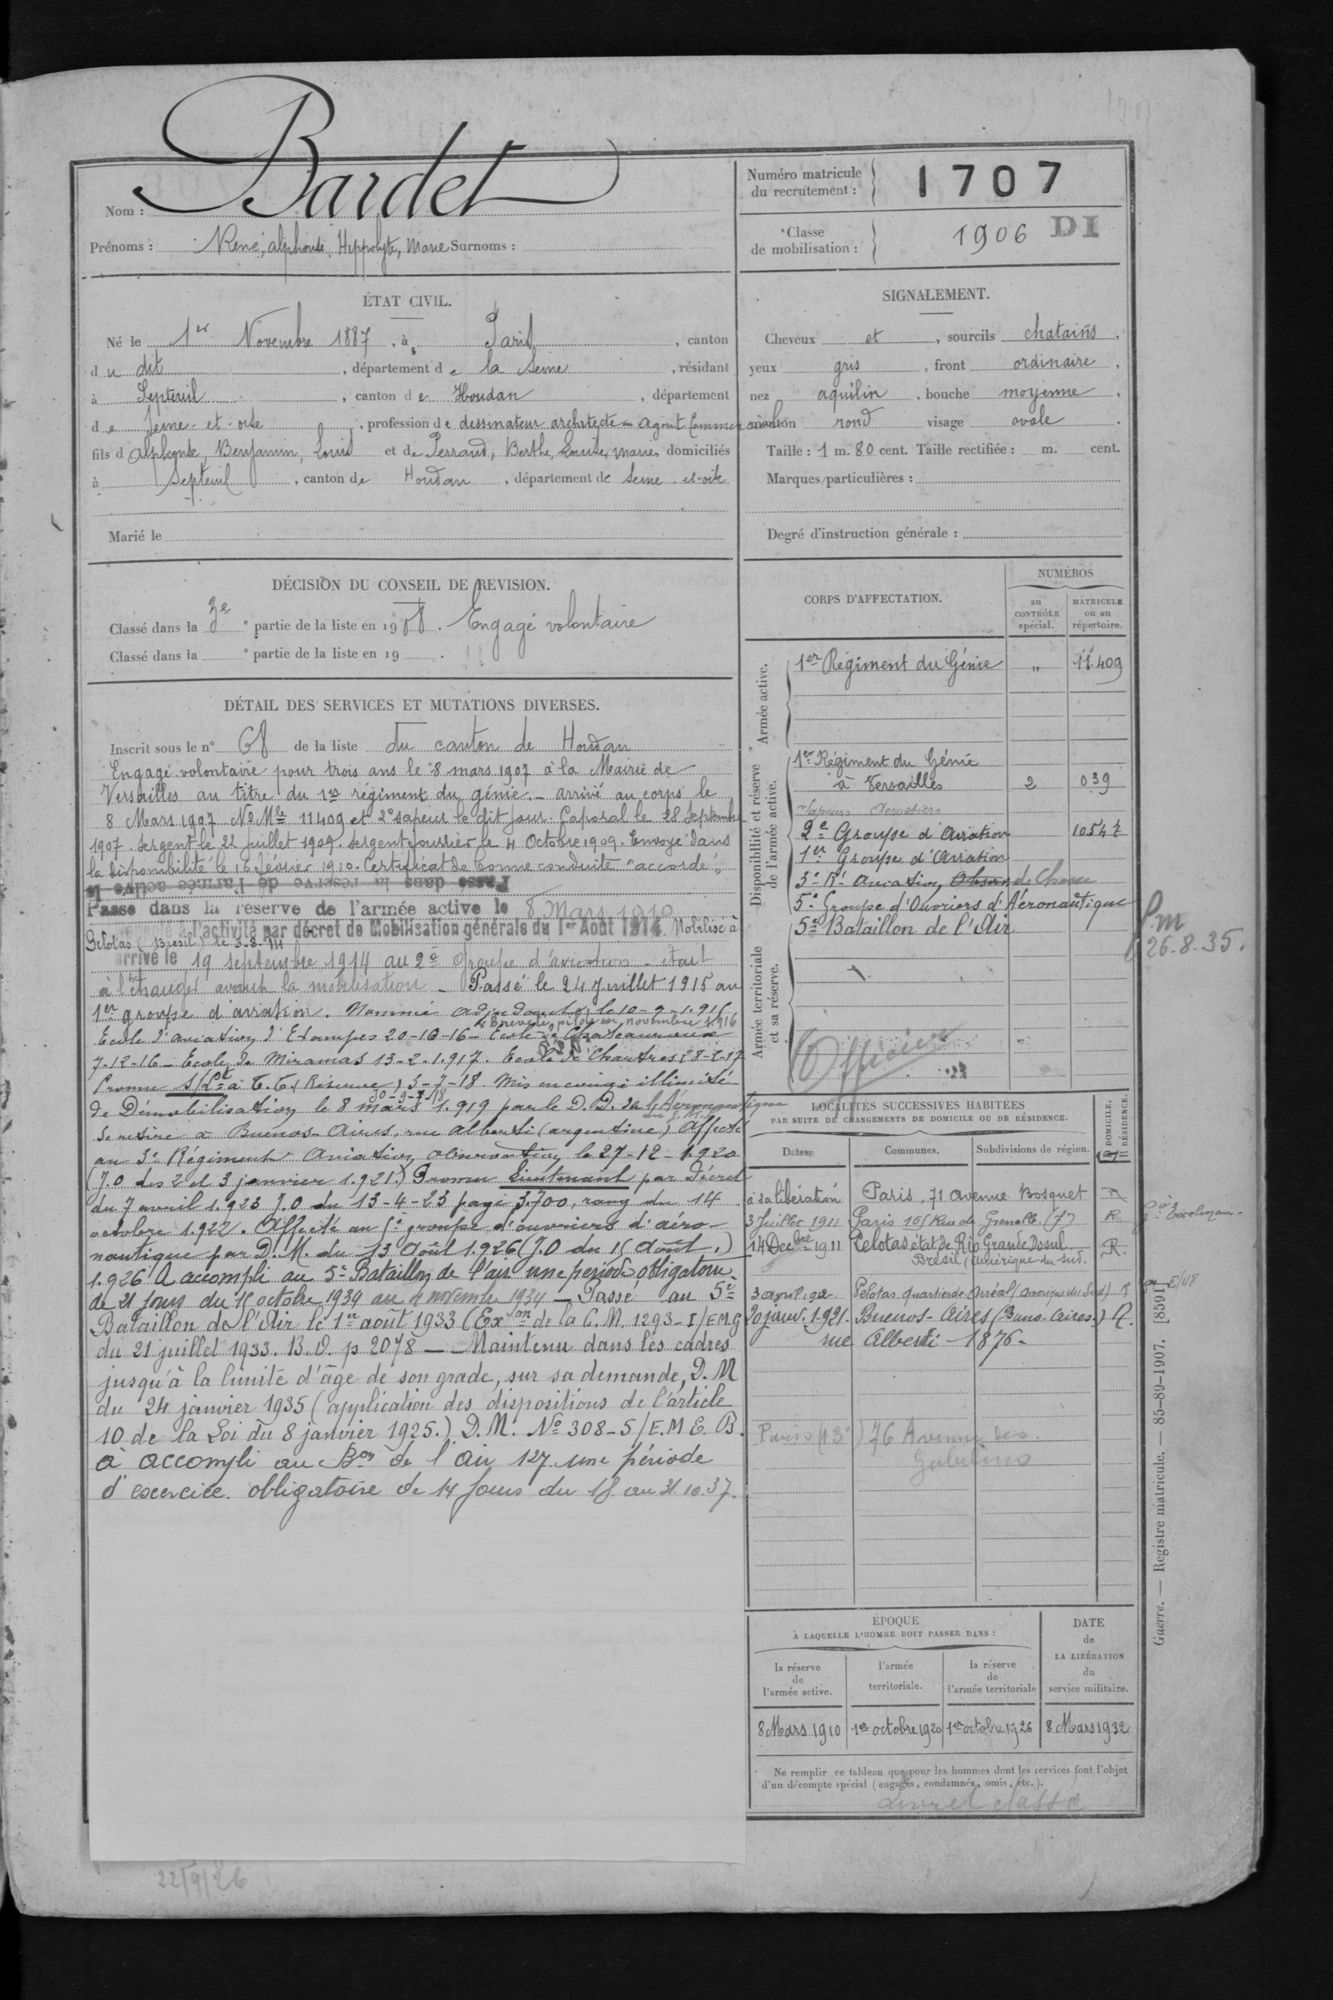 Bardet
Nom :
Prénoms : René, alphonse, Hippolyte, Marie Surnoms :
Numéro matricule du recrutement : 1707
Classe de mobilisation : 1906 DI
ÉTAT CIVIL.
Né le 1er Novembre 1887, à Paris, canton
du dit, département de la Seine, résidant
à Septeuil, canton de Houdan, département
de Seine-et-oise, profession de dessinateur architecte - agent Commercial
fils d'Alphonse, Benjamin, Louis et de Perraud, Berthe, Louise, Marie domiciliés
à Septeuil, canton de Houdan, département de Seine-et-oise
Marié le
SIGNALEMENT.
Cheveux et, sourcils chatains,
yeux gris, front ordinaire,
nez aquilin, bouche moyenne,
menton rond visage ovale.
Taille : 1 m. 80 cent. Taille rectifiée : m. cent.
Marques particulières :
Degré d'instruction générale :
DÉCISION DU CONSEIL DE REVISION.
Classé dans la 3e partie de la liste en 1908. Engagé volontaire
Classé dans la e partie de la liste en 19 .
DÉTAIL DES SERVICES ET MUTATIONS DIVERSES.
Inscrit sous le n° 68 de la liste du canton de Houdan
Engagé volontaire pour trois ans le 8 mars 1907 à la Mairie de
Versailles au titre du 1er régiment du génie. – arrivé au corps le
8 Mars 1907. No Mle 11409 et 2e sapeur le dit jour. Caporal le 28 Septembre
1907. Sergent le 22 juillet 1909. Sergent fourrier le 4 Octobre 1909. Envoyé dans
la disponibilité le 16 février 1910. Certificat de bonne conduite "accordé"
Passé dans la réserve de l'armée active le
Passé dans la réserve de l'armée active le 8 Mars 1910
l'activité par décret de Mobilisation générale du 1er Août 1914. Mobilisé à
Pelotas (Brésil) le 3.8.14
arrivé le 19 septembre 1914 au 2e Groupe d'aviation. était
à l'étranger avant la mobilisation – Passé le 24 Juillet 1915 au
1er groupe d'aviation. Nommé adjudant le 10-9-1.916
Breveté pilote en novembre 1.916
Ecole d'aviation d'Etampes 20-10-16 – Ecole de Chateauroux
7-12-16 – Ecole de Miramas 13-2-1.917. Ecole de Chartres 28-2-17
Promu S/Lt à T.T. (Réserve) 3-7-18. Mis en congé illimité
30-9-18
de Démobilisation le 8 mars 1.919 par le D. D. de l'Aéronautique
Se retire à Buenos-Aires, rue alberti (argentine) Affecté
au 3e Régiment Aviation observation le 27-12-1.920
(J.O des 2 et 3 janvier 1.921.) Promu Lieutenant par Décret
du 7 avril 1.923 J.O du 13-4-23 page 3.700, rang du 14
octobre 1.922. Affecté au 5e groupe d'ouvriers d'aéro-
nautique par D. M. du 13 Août 1.926 (J.O du 15 Août.)
1.926 A accompli au 5e Bataillon de l'air une période obligatoire
de 21 jours du 15 octobre 1934 au 4 novembre 1934 – Passé au 5e
Bataillon de l'Air le 1er août 1933 (Exon de la C.M. 1293-I/EMG
du 21 juillet 1933. B.O. p 2078 – Maintenu dans les cadres
jusqu'à la limite d'âge de son grade, sur sa demande, D. M
du 24 janvier 1935 (application des dispositions de l'article
10 de la Loi du 8 janvier 1925.) D. M. No 308-5/E.M G. B.
à accompli au Bon de l'air 127 une période
d'exercice obligatoire de 14 jours du 18 au 31.10.37.
CORPS D'AFFECTATION.
NUMÉROS
au CONTRÔLE spécial.
MATRICULE ou au répertoire.
Armée active.
1er Régiment du Génie " 11.409
Disponibilité et réserve de l'armée active.
1er Régiment du Génie
à Versailles 2 039
Sapeurs Aerostiers
2e Groupe d'Aviation
1er Groupe d'Aviation
3e Rt Aviation Obser. de Chasse
5e Groupe d'Ouvriers d'Aéronautique
5e Bataillon de l'Air
Armée territoriale et sa réserve.
Officier
P.m
26.8.35.
LOCALITÉS SUCCESSIVES HABITÉES
PAR SUITE DE CHANGEMENTS DE DOMICILE OU DE RÉSIDENCE.
Dates. Communes. Subdivisions de région. D DOMICILE. R RÉSIDENCE.
à sa libération Paris, 71 avenue Bosquet
3 Juillet 1911 Paris 151 Rue de Grenelle (7) R
14 Decbre 1911 Pelotas état de Rio Grande Dosul R.
Brésil (Amérique du sud.
3 avril 1920 Pelotas quartier de Arréal (Amérique du Sud) R
20 janv. 1.921. Buenos-Aires (Buno Aires.) R.
rue Alberti – 1876 –
Paris (13e) 76 Avenue des
Gobelins
ÉPOQUE
À LAQUELLE L'HOMME DOIT PASSER DANS :
la réserve de l'armée active.
l'armée territoriale.
la réserve de l'armée territoriale
DATE de LA LIBÉRATION du service militaire.
8 Mars 1910 1er octobre 1920 1er octobre 1926 8 Mars 1932
Ne remplir ce tableau que pour les hommes dont les services font l'objet
d'un décompte spécial (engagés, condamnés, omis, etc.).
Livret classé
Guerre. – Registre matricule. – 85-89-1907. [8591]
22/9/26